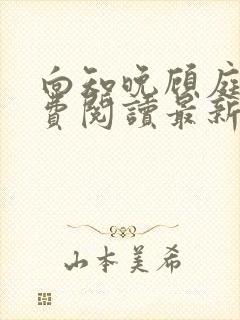 向知晚顾庭
費閱讀最新
山本美希